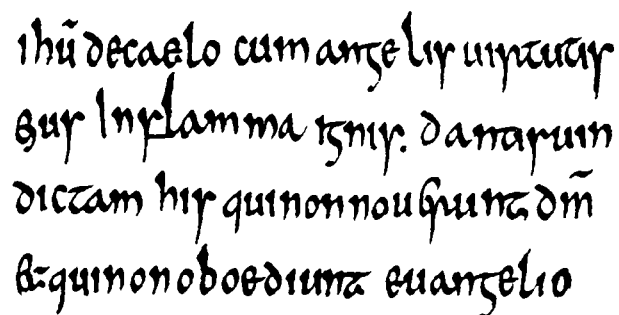 ihū de caelo cum angelis uirtutis
eius In flamma ignis. dantis uin
dictam his qui non nouerunt dm̄
et qui non oboediunt euangelio